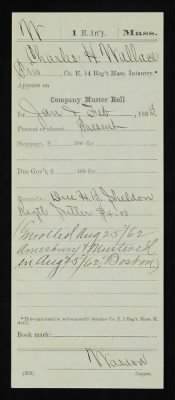 W 1 H. Art'y. Mass.
Charles H Wallace
Priv, Co. E, 14 Reg't Mass. Infantry.*
Appears on
Company Muster Roll
for Jan & Feb, 1863.
Present or absent Present
Stoppage, $ 100 for
Due Gov't, $ 100 for
Remarks: Due H. B. Sheldon
Regtl Sutler $4.00
Enrolled Aug 25/62
Amesbury & Mustered
in Aug 25/62, Boston
*This organization subsequently became Co. E, 1 Reg't Mass. H. Art'y.
Book mark:
(358) Copyist.